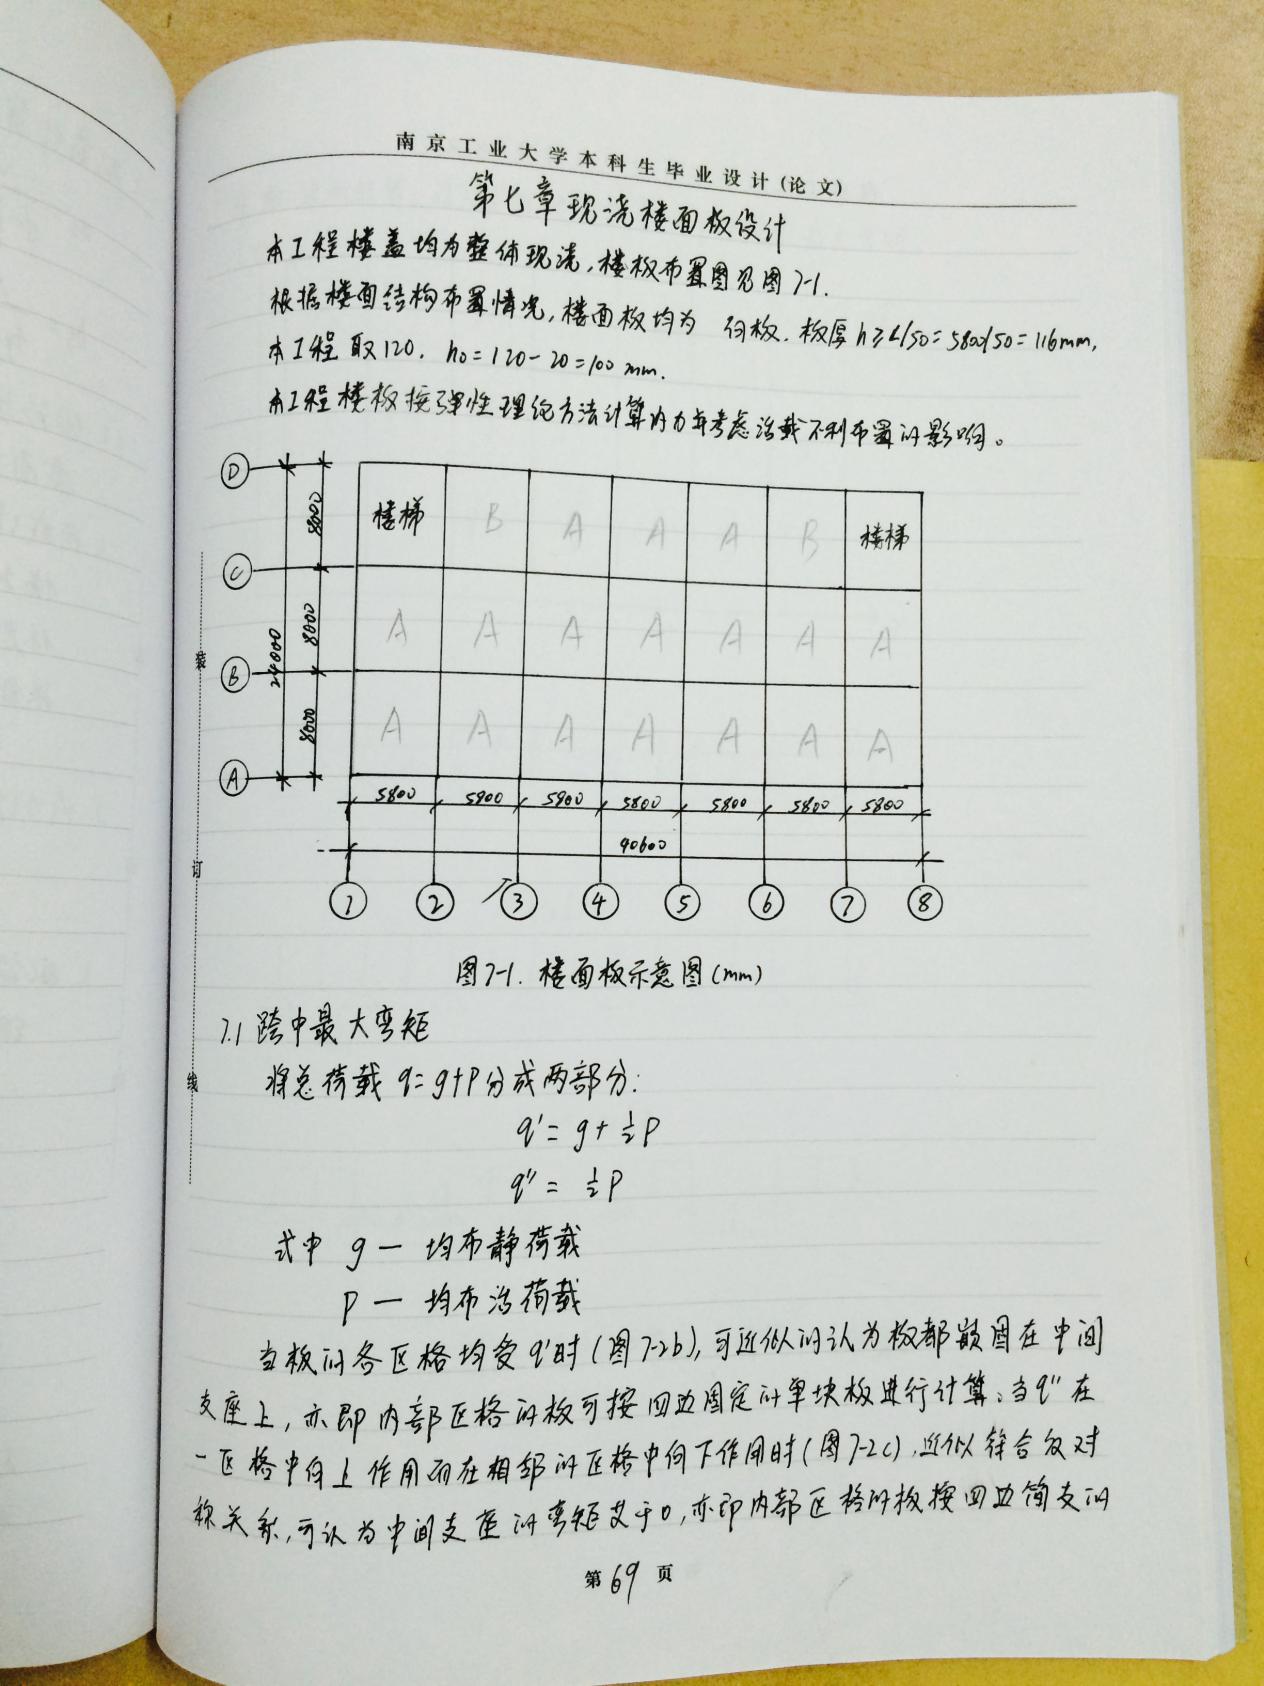 南京工业大学本科生毕业设计(论文)
第七章现浇楼面板设计
本工程楼盖均为整体现浇,楼板布置图见图7-1.
根据楼面结构布置情况,楼面板均为 向板.板厚h≥L/50=5800/50=116mm,
本工程取120. h0=120-20=100mm.
本工程楼板按弹性理论方法计算内力并考虑活载不利布置的影响。
D
8000
楼梯 B A A A B 楼梯
C
8000
A A A A A A A
24000
B
8000
A A A A A A A
A
5800 5800 5800 5800 5800 5800 5800
40600
1 2 3 4 5 6 7 8
图7-1.楼面板示意图(mm)
7.1跨中最大弯矩
将总荷载q=g+P分成两部分:
q'=g+½P
q"=½P
式中 g— 均布静荷载
P— 均布活荷载
当板的各区格均受q'时(图7-2b),可近似的认为板都嵌固在中间
支座上,亦即内部区格的板可按四边固定的单块板进行计算。当q"在
一区格中向上作用而在相邻的区格中向下作用时(图7-2c),近似符合反对
称关系,可认为中间支座的弯矩等于0,亦即内部区格的板按四边简支的
第69页
装
订
线